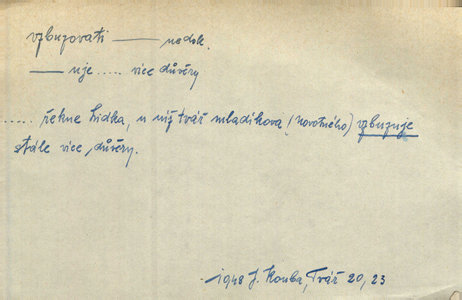 vzbuzovati —— nedok.
—— uje ..... více důvěry
..... řekne Lidka, u níž tvář mladíkova (Novotného) vzbuzuje
stále více důvěry.
1948 J. Kouba, Tvář 20, 23